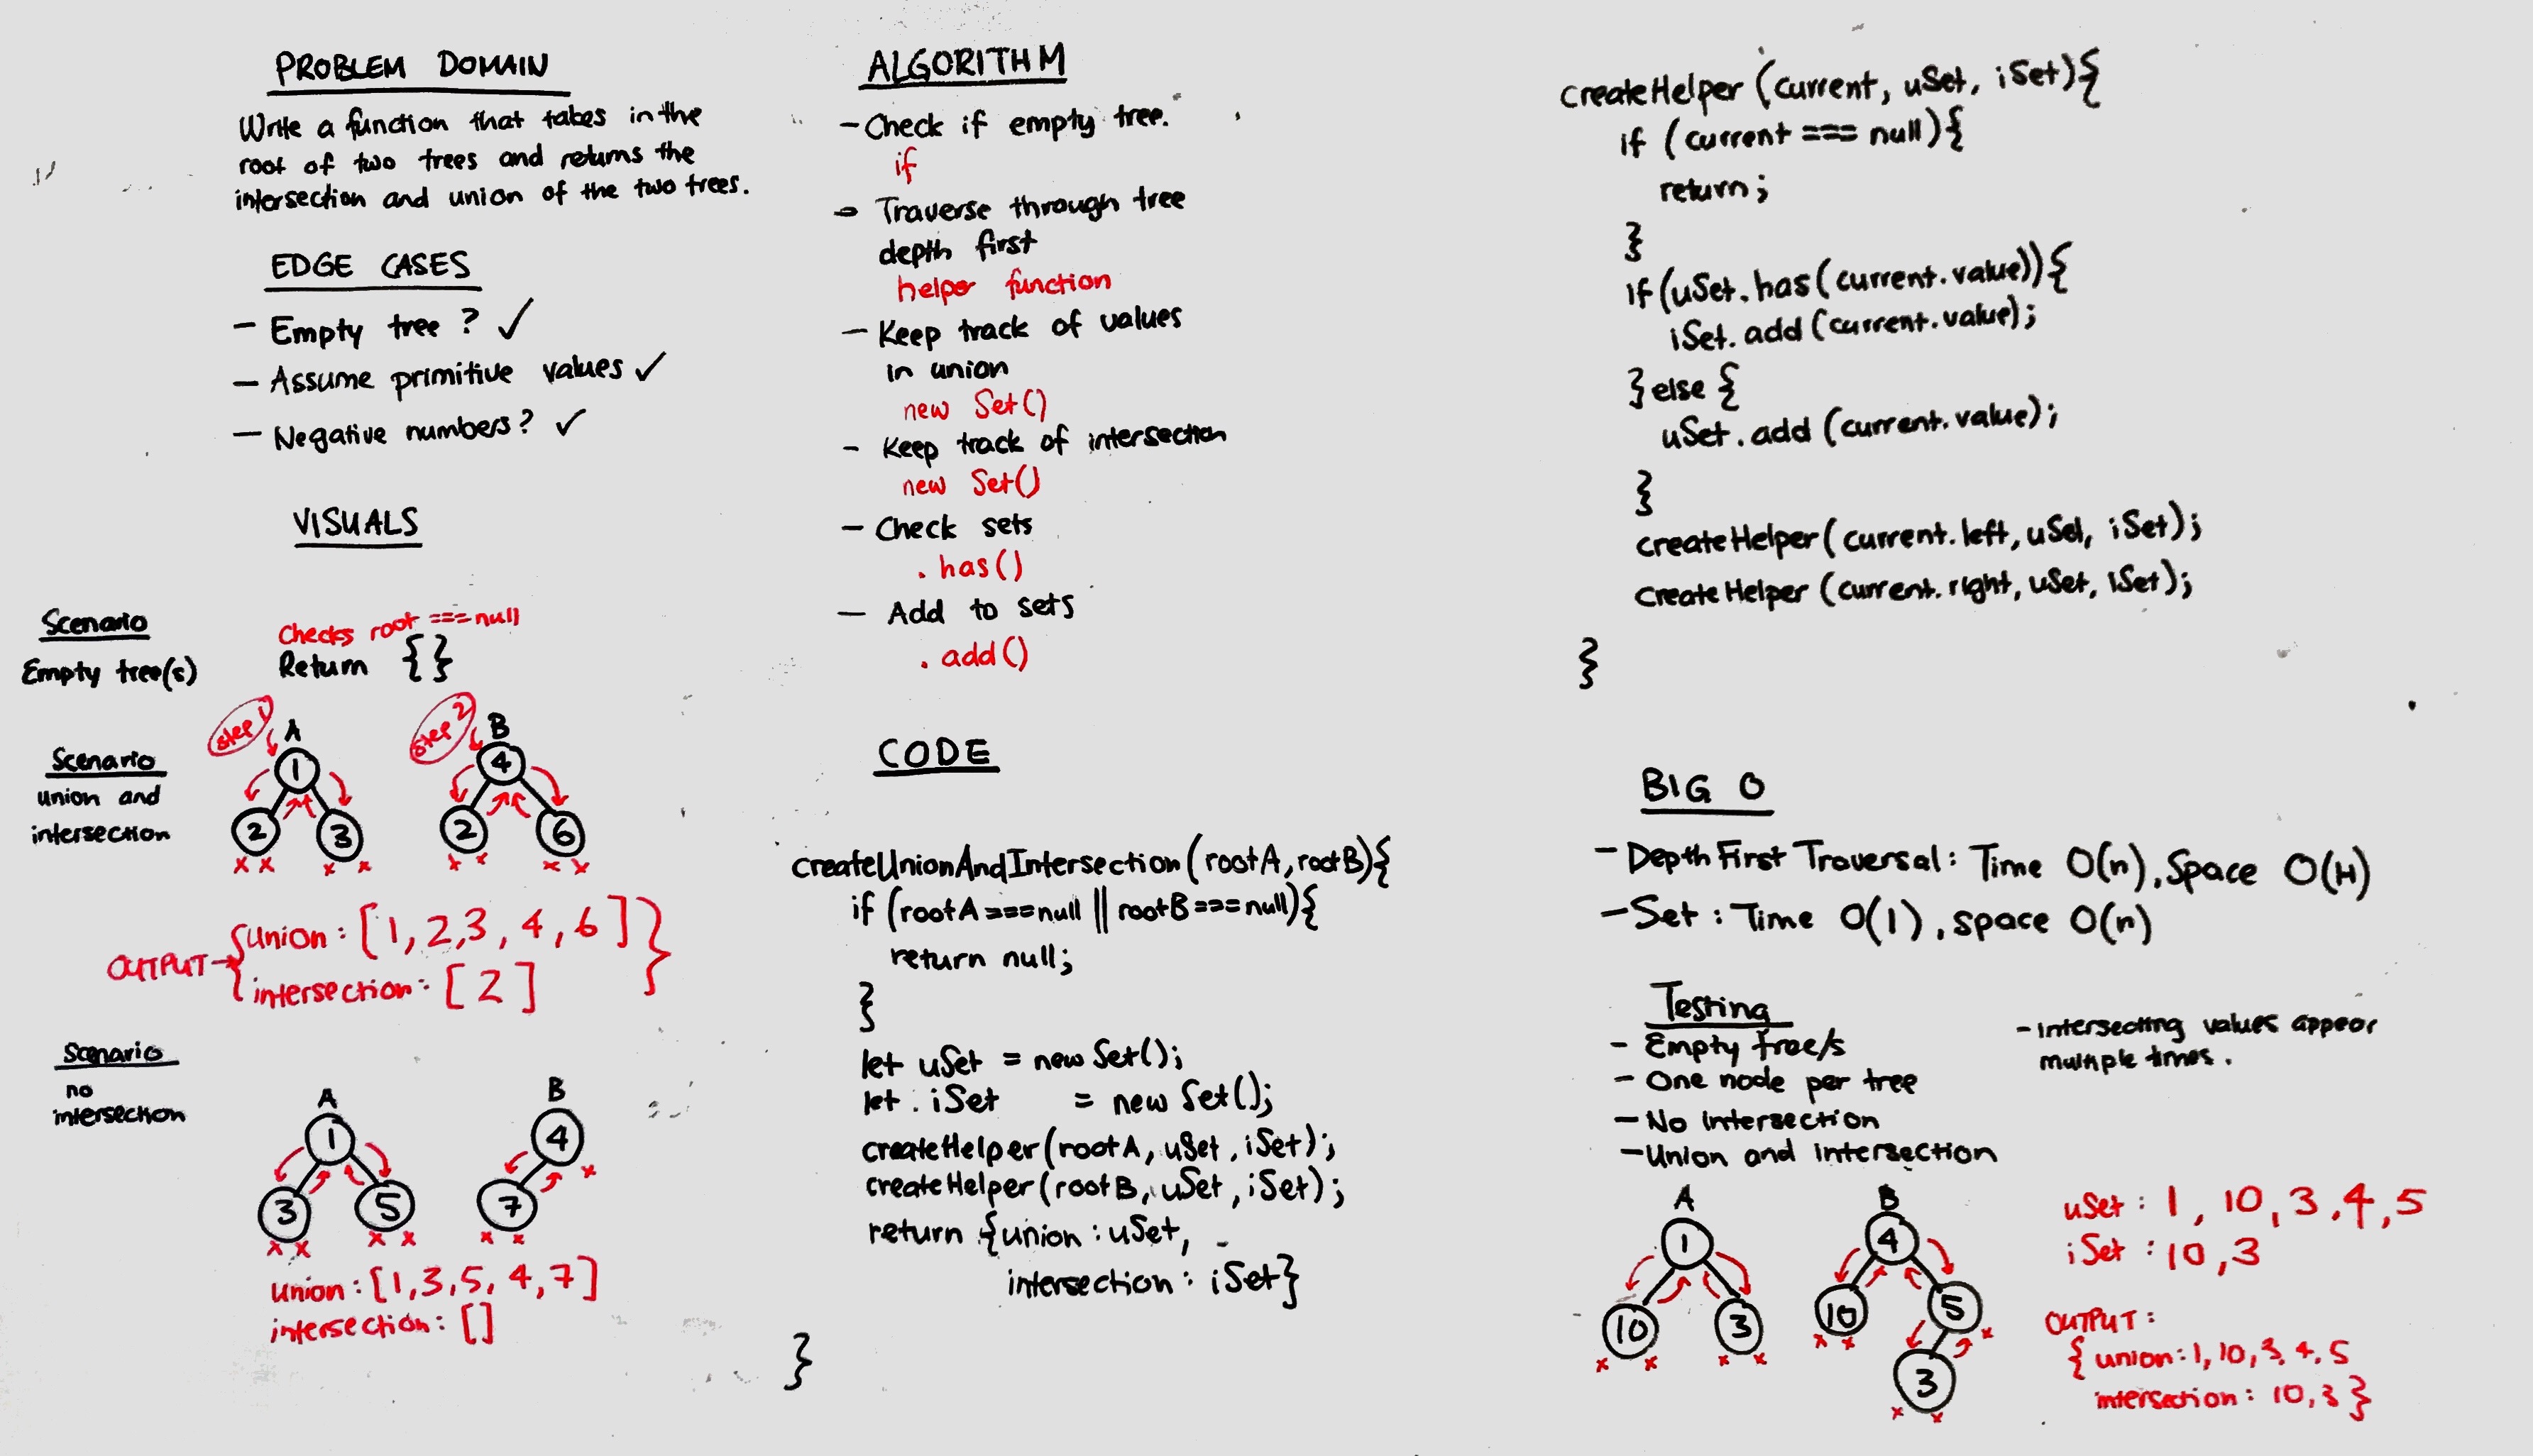 PROBLEM DOMAIN
Write a function that takes in the
root of two trees and returns the
intersection and union of the two trees.
EDGE CASES
- Empty tree? ✓
- Assume primitive values ✓
- Negative numbers? ✓
VISUALS
Scenario
Empty tree(s)
Checks root === null
Return {}
Scenario
union and
intersection
step 1
A
1
2 3
x x x x
step 2
B
4
2 6
x x x x
OUTPUT → {union: [1, 2, 3, 4, 6]}
intersection: [2]
Scenario
no
intersection
A
1
3 5
x x x x
B
4
x
7
x x
union: [1, 3, 5, 4, 7]
intersection: []
ALGORITHM
- Check if empty tree.
if
- Traverse through tree
depth first
helper function
- Keep track of values
in union
new Set()
- Keep track of intersection
new Set()
- Check sets
.has()
- Add to sets
.add()
CODE
createUnionAndIntersection(rootA, rootB){
if (rootA === null || rootB === null){
return null;
}
let uSet = new Set();
let iSet = new Set();
createHelper(rootA, uSet, iSet);
createHelper(rootB, uSet, iSet);
return {union: uSet,
intersection: iSet}
}
createHelper (current, uSet, iSet){
if (current === null){
return;
}
if (uSet.has(current.value)){
iSet.add(current.value);
}else {
uSet.add(current.value);
}
createHelper(current.left, uSet, iSet);
createHelper(current.right, uSet, iSet);
}
BIG O
- Depth First Traversal: Time O(n), Space O(H)
- Set: Time O(1), space O(n)
Testing
- Empty tree/s
- One node per tree
- No intersection
- Union and intersection
- intersecting values appear
multiple times.
A
1
10 3
x x x x
B
4
10 5
x x x
3
x x
uSet: 1, 10, 3, 4, 5
iSet: 10, 3
OUTPUT:
{union: 1, 10, 3, 4, 5
intersection: 10, 3}